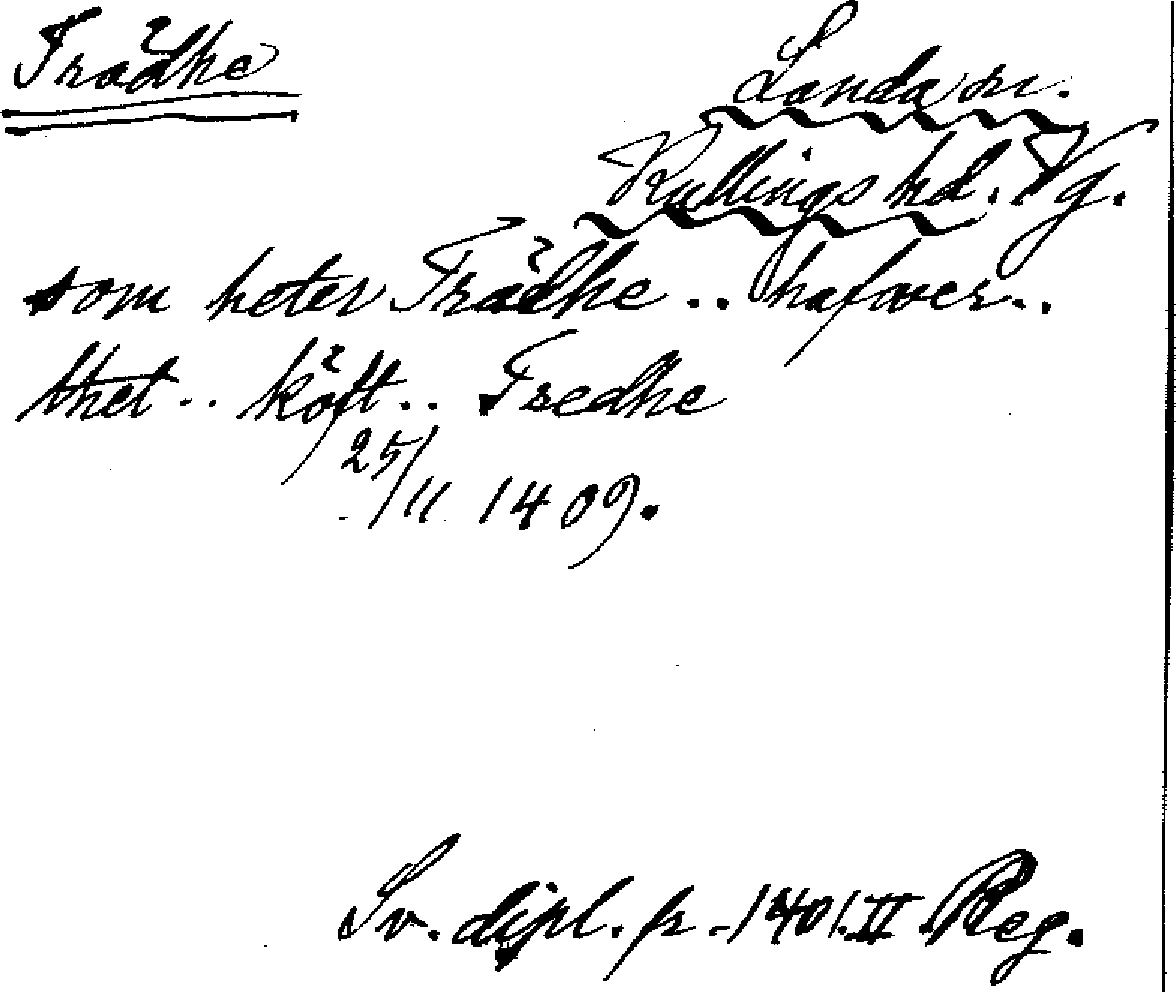 Trädhe
Landa sn.
Kullings hd. Vg.
som heter Trädhe .. hafwer ..
thet .. köft .. Tredhe
25/11 1409.
Sv. dipl. fr. 1401. II. Reg.